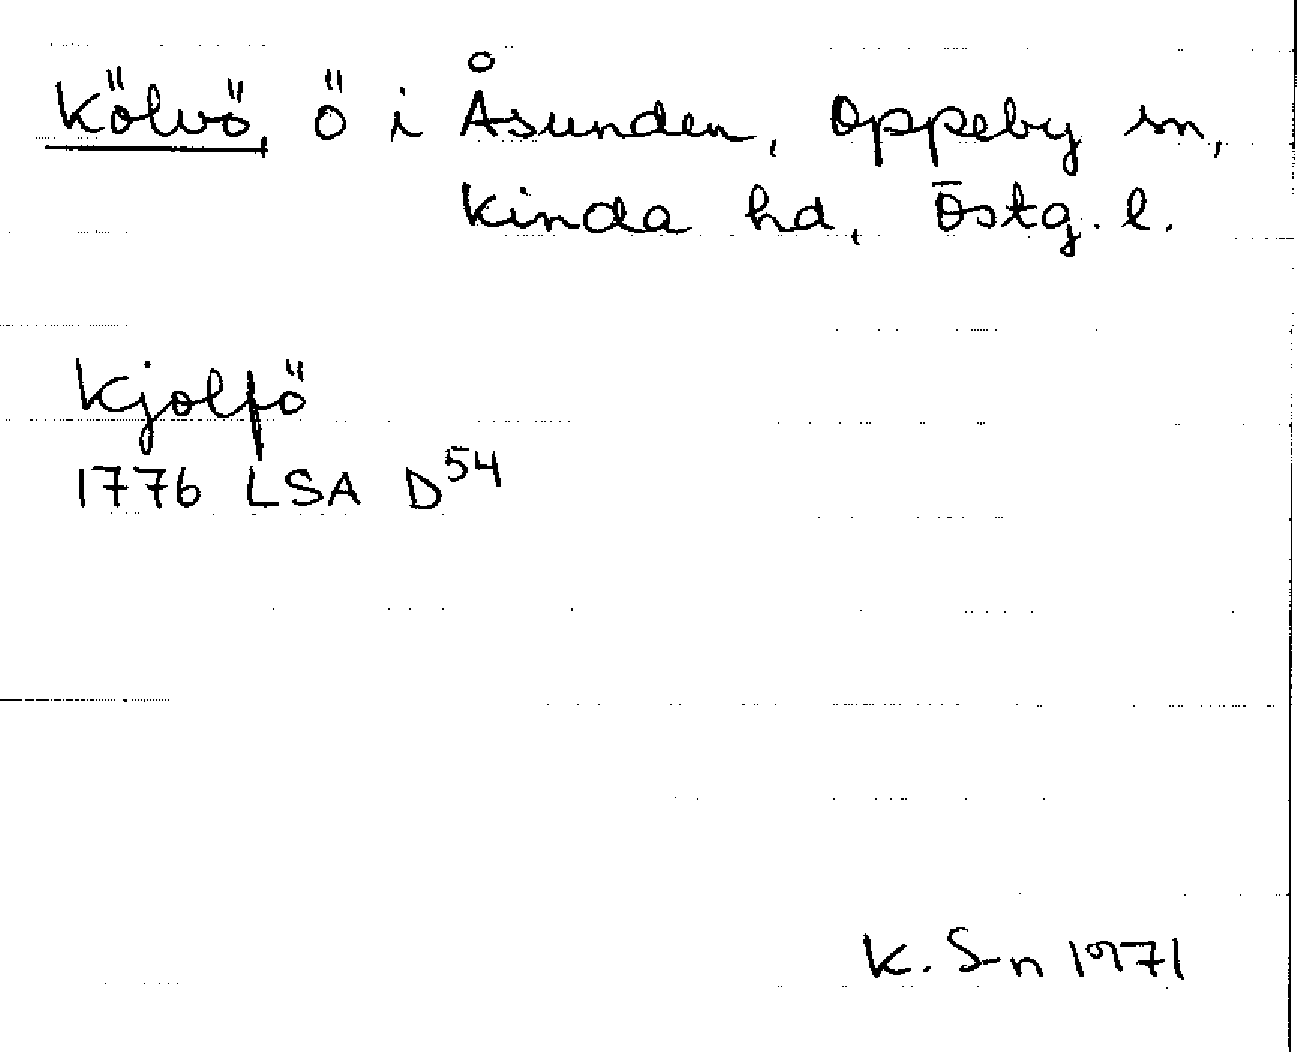 Kölvö, ö i Åsunden, Oppeby sn,
Kinda hd, Östg. l.
Kjolfö
1776 LSA D54
K. S-n 1971